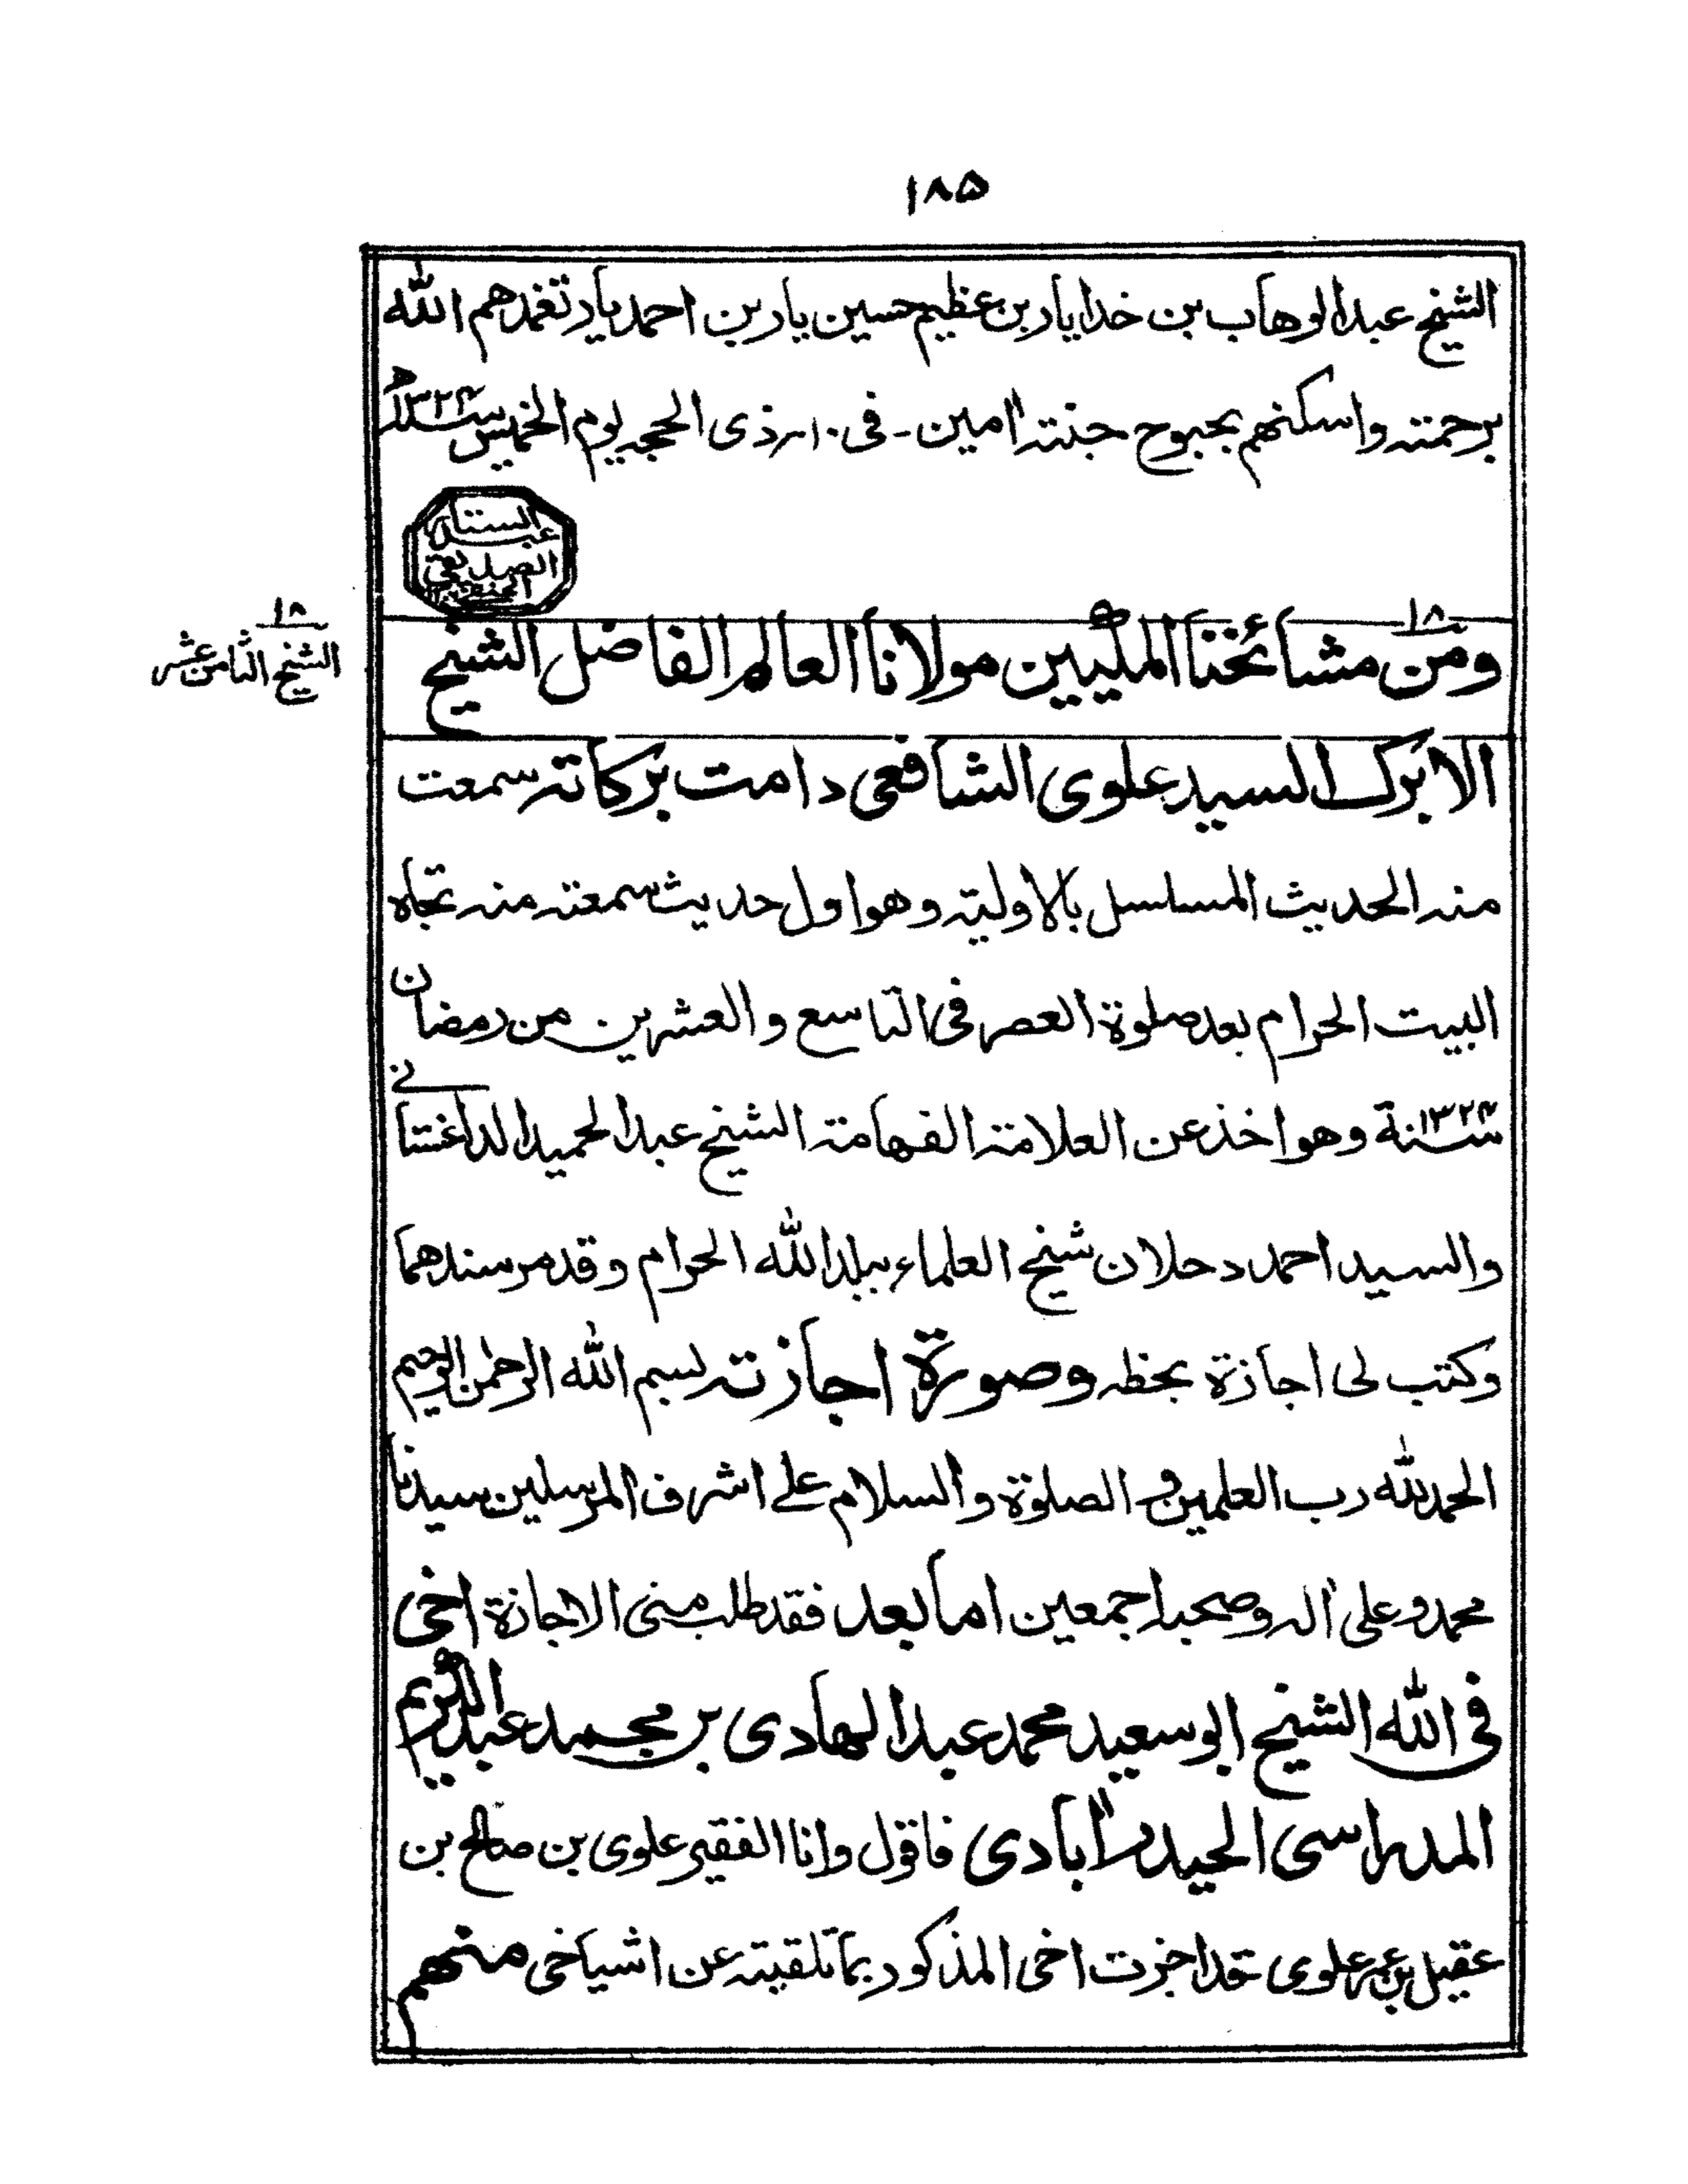 ١٨۵
الشيخ عبدالوهاب بن خدايار بن عظيم حسين يار بن احمد يار تغمدهم الله
برحمته واسكنهم بحبوح جنته اٰمين ـ فى ١٠ رذى الحجه يوم الخميس سنه ١٣٢۴ ه
الستار
عبد
الصديقى
الحنفى
١٨
ومن مشائخنا المكيين مولانا العالم الفاضل الشيخ
١٨
الشيخ الثامن عشر
الابرك السيد علوى الشافعى دامت بركاته سمعت
منه الحديث المسلسل بالاولية وهو اول حديث سمعته منه تجاه
البيت الحرام بعد صلوة العصر فى التاسع والعشرين من رمضان
سنة ١٣٢۴ وهو اخذ عن العلامة الفهامة الشيخ عبدالحميد الداغستانى
والسيد احمد دحلان شيخ العلماء ببلد الله الحرام وقد مر سندهما
وكتب لى اجازة بخطه وصورة اجازته بسم الله الرحمٰن الرحيم
الحمد لله رب العلمين و الصلوة والسلام على اشرف المرسلين سيدنا
محمد و على اٰله وصحبه اجمعين اما بعد فقد طلب منى الاجازة اخى
فى الله الشيخ ابو سعيد محمد عبد الهادى بن محمد عبد الكريم
المدراسى الحيدراٰبادى فاقول وانا الفقير علوى بن صالح بن
عقيل بن عمر علوى قد اجزت اخى المذكور بما تلقيته عن اشياخى منهم